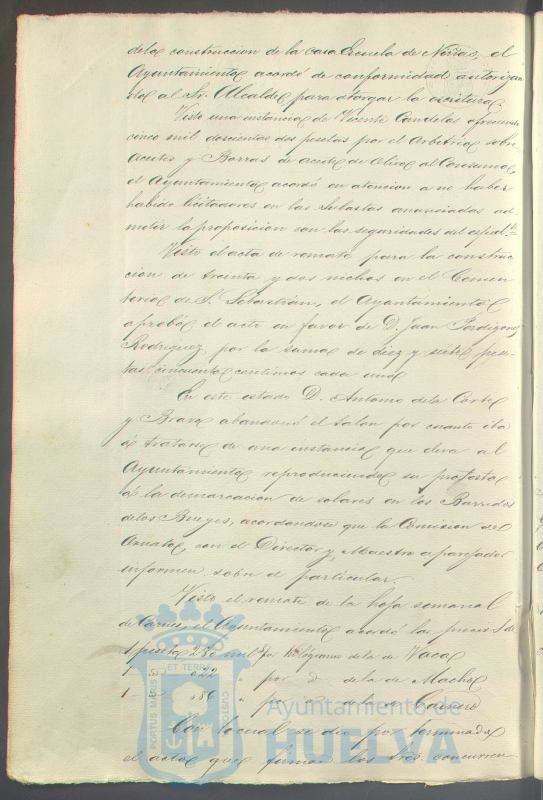 dela construccion de la casa Escuela de Niñas, el
Ayuntamiento acordó de conformidad autorizan
do al Sr. Alcalde para otorgar la escritura
Visto una instancia de Vicente Candelas ofreciendo
cinco mil doscientas dos pesetas por el Arbitrio sobre
Aceites y Borras de aceite de Oliva al Consumo,
el Ayuntamiento acordó en atencion a no haber
habido licitadores en las Subastas anunciadas ad
mitir la proposicion con las seguridades del
Visto el acta de remate para la construc
cion de treinta y dos nichos en el Cemen
terio de S. Sebastián, el Ayuntamiento
aprobó el acto en favor de D. Juan Perdigones
Rodriguez por la suma de diez y siete pese
tas cincuenta centimos cada uno
En este estado D. Antonio dela Corte
y Bravo abandonó el salon por cuanto iba
á tratarse de una instancia que eleva al
Ayuntamiento reproduciendo su protesta
á la demarcacion de solares en los Barridos
delos Bueyes, acordandose que la Comision de
Ornato, con el Director y Maestro aparejador
informen sobre el particular.
Visto el remate de la hoja semanal
de Carnes, el Ayuntamiento acordó los precios de
1 peseta 230 mils por Kilógramo de la de Vaca
1 " 022 " por id. de la de Macho
1 - " 186 " por id. de la de Carnero
Con lo cual se dio por terminado
el acto que firman los Sres. concurren
PORTUS MARIS ET TERRAE CUSTODIA
Ayuntamiento de
HUELVA